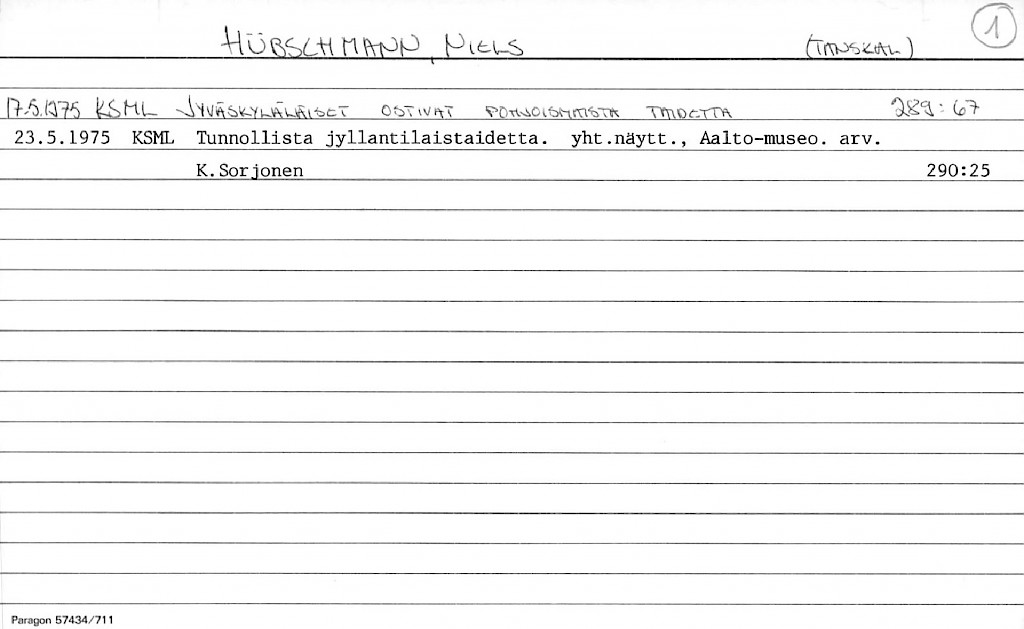 HÜBSCHMANN, NIELS (TANSKAL) 1
17.5.1975 KSML JYVÄSKYLÄLÄISET OSTIVAT POHJOISMAISTA TAIDETTA 289:67
23.5.1975 KSML Tunnollista jyllantilaistaidetta. yht.näytt., Aalto-museo. arv.
K.Sorjonen 290:25
Paragon 57434/711